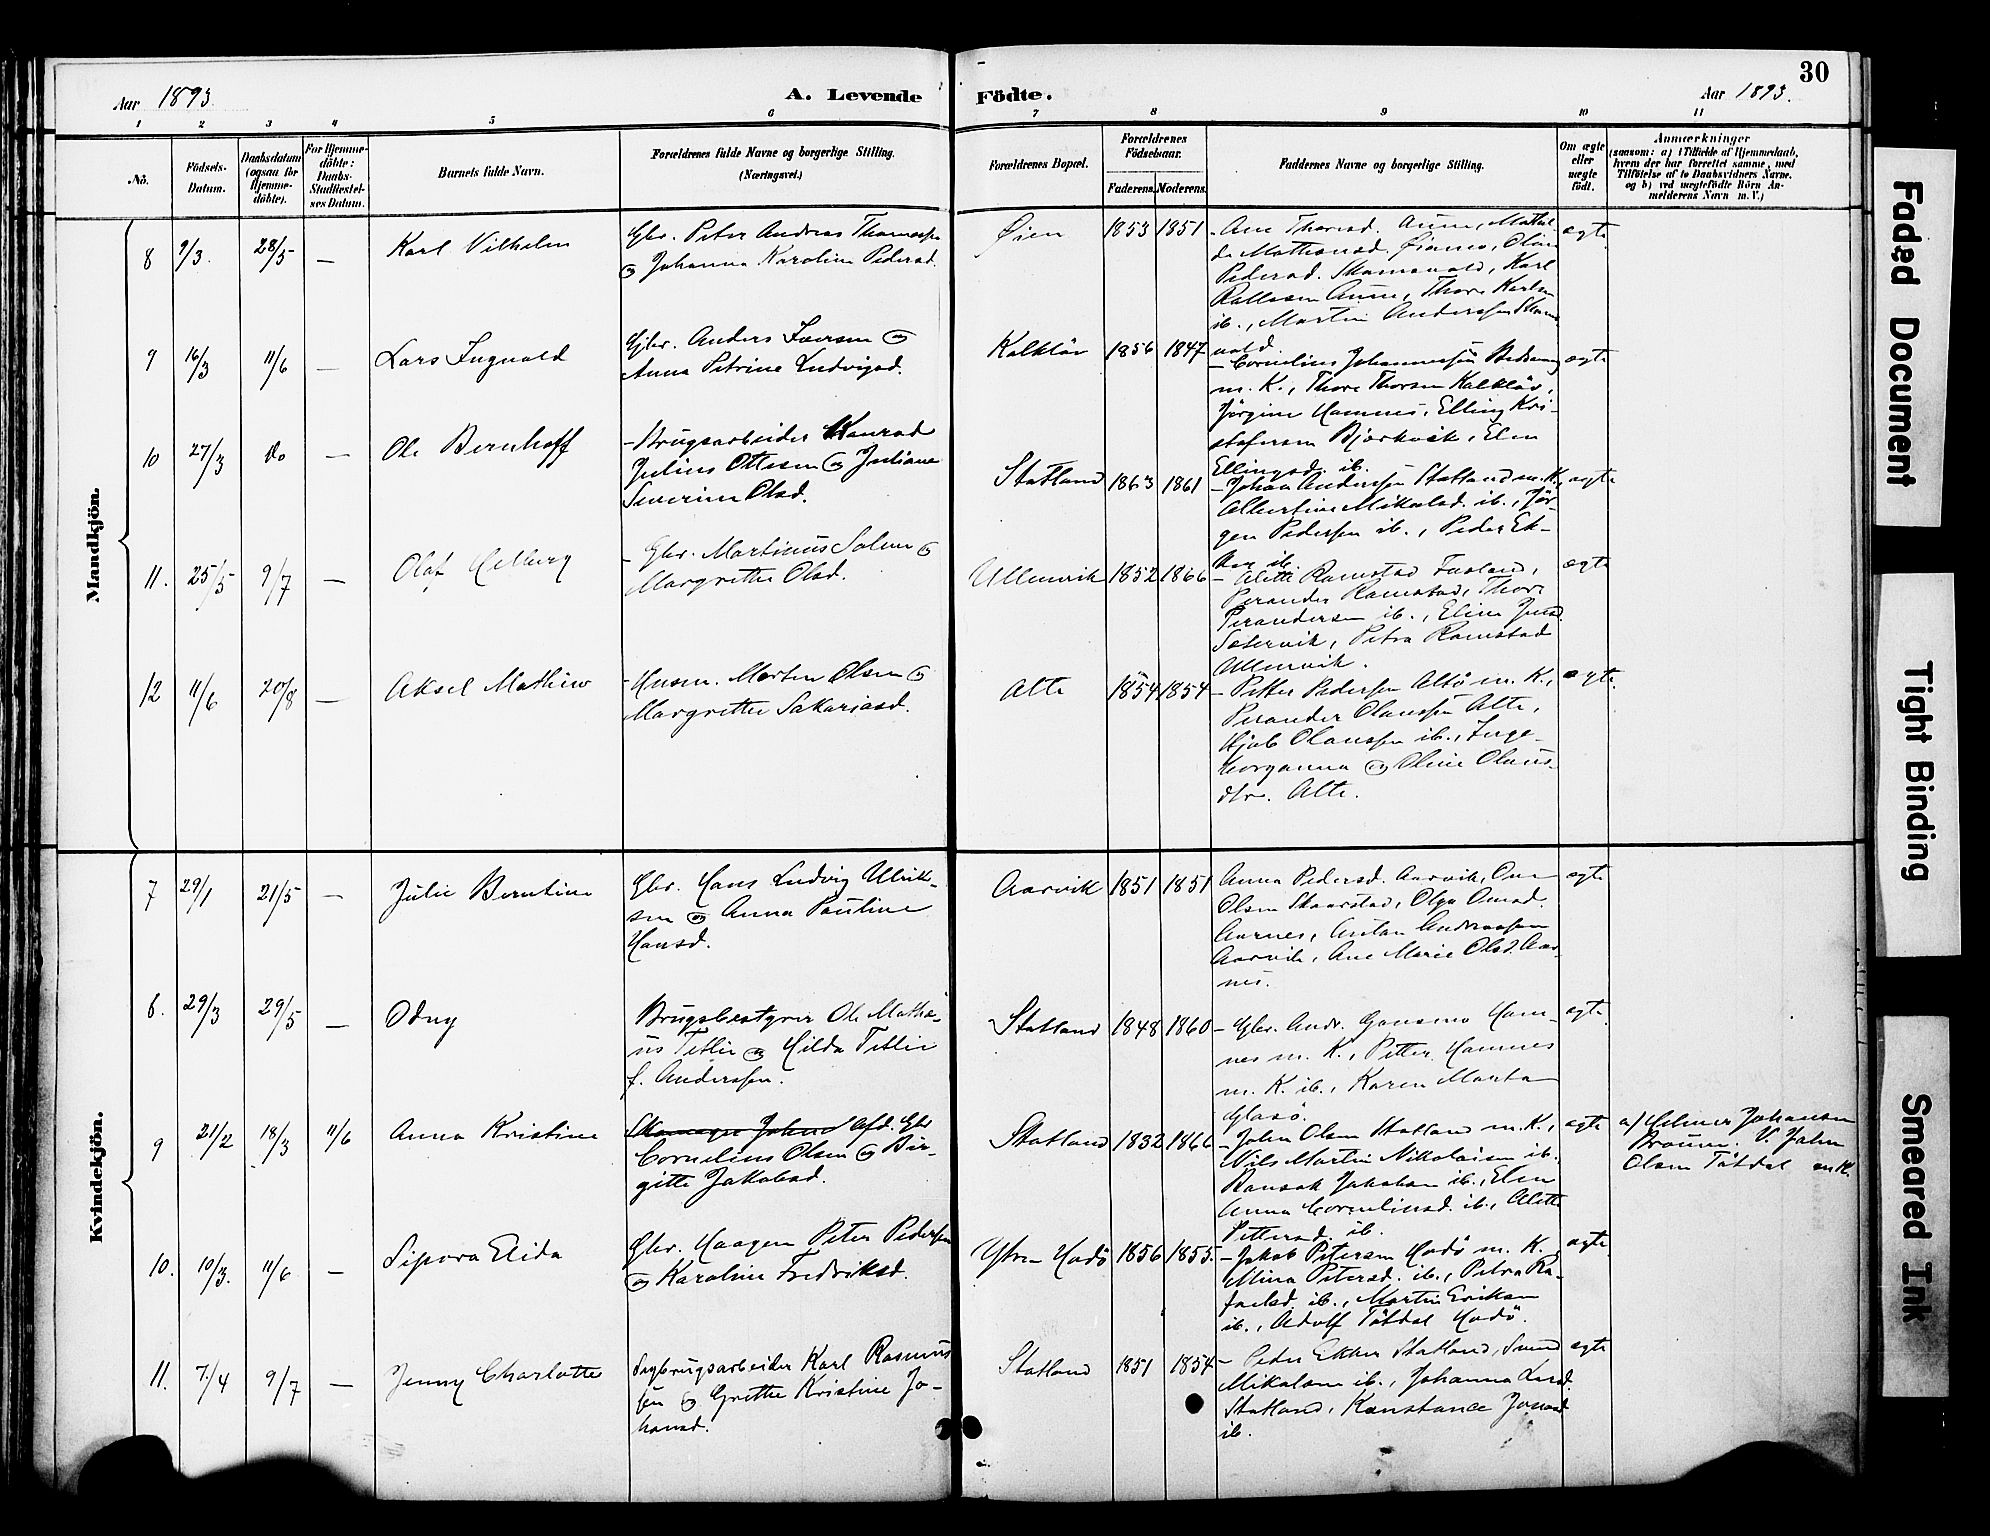 30
Aar 1893.
A. Levende Födte.
Aar 1893.
1 2 3 4 5 6 7 8 9 10 11
No.
Födsels-
Datum.
Daabsdatum
(ogsaa for
Hjemme-
döbte).
For Hjemme-
döbte:
Daabs-
Stadfæstel-
ses Datum.
Barnets fulde Navn.
Forældrenes fulde Navne og borgerlige Stilling.
(Næringsvei.)
Forældrenes Bopæl.
Forældrenes
Födselsaar.
Faderens. Moderens.
Faddernes Navne og borgerlige Stilling.
Om ægte
eller
uægte
født.
Anmærkninger
(saasom: a) i Tilfælde af Hjemmedaab,
hvem der har forrettet samme, med
Tilföielse af to Daabsvidners Navne.
og b) ved uægtefödte Börn An-
melderens Navn m. V.)
Mandkjön.
8 9/3. 28/5 — Karl Vilhelm
Gbr. Peter Andreas Thomessen
og Johanna Karoline Pedersd.
Öien 1853 1851
- Ane Thoresd. Aune, Mathil-
de Mathiasd. Öiamo, Oline
Pedersd. Skamsvold, Karl
Aune, Thore Karlsen
ib., Martin Anderssen Skams-
vold.
ægte
9 16/3 11/6 — Lars Ingvald
Gbr. Anders Iversen og
Anna Petrine Ludvigsd.
Kalklöv 1856 1847
- Cornelius Johannessen
m. K., Thore Thorsen Kalklöv,
Jørgine Hamnes, Elling Kri-
stofersen Bjørkvik, Elen
Ellingsd. ib.
ægte
10 27/3 do — Ole Bernhoff
- Brugsarbeider Konrad
Julius Ottesen og Juliane
Severine Olsd.
Statland 1863 1861
- Johan Anderssen Statland m. K.,
Albertine Mikalsd. ib., Jør-
gen Pedersen ib., Peder Ek-
ker ib.
ægte
11. 25/5 9/7 — Olaf Helberg
- Gbr. Martinus Salen og
Margrethe Olsd.
Ullenvik 1852 1866
- Alette Ramstad Fasland,
Perander Ramstad, Thore
Perandersen ib., Eline Jensd.
Setervik, Petra Ramstad
Ullenvik.
ægte
12 11/6 20/8 — Aksel Mathieo
- Husm. Morten Olsen og
Margrethe Sakariasd.
Alte 1854 1854
- Petter Pedersen Altö m. K.,
Perander Olaussen Alte,
Olaussen ib., Inge-
borganna og Oline Olaus-
dtr. Alte.
ægte.
Kvindekjön.
7 29/1 21/5 — Julie Berntine
Gbr. Hans Ludvig Ulrik-
sen og Anna Pauline
Hansd.
Aarvik 1851 1851
Anna Pedersd. Aarvik, Ove
Olsen Skaarstad, Olga Amsd.
Aarnes, Anton Andreassen
Aarvik, Ane Marie Olsd. Aar-
nes.
ægte
8. 29/3 29/5 — Odny
Brugsbestyrer Ole Mathe-
us Tetlie og Hilda Tetlie
f. Anderssen.
Statland 1848 1860
- Gbr. Andr. Gansmo Ham-
nes m. K., Petter Hamnes
m. K. ib., Karen Marta
Glasö.
ægte
9 21/2 18/3 11/6 Anna Kristine
Skomager Johan Afd. Gbr
Cornelius Olsen og Bir-
gitte Jakobsd.
Statland 1832 1866
- John Olsen Statland m. K.,
Nils Martin Nikolaisen ib.,
Jakobsen ib., Elen
Anna Cornelinsd. ib., Alette
Pettersd. ib.
ægte
a) Helmer Johansen
V. John
Olsen Tötdal m. K.
10. 10/3. 11/6 — Sipora Elida
Gbr. Haagen Peter Pedersen
og Karoline Fredriksd.
Ytre Hodö 1856 1855.
- Jakob Petersen Hodö m. K.
Mina Petersd. ib., Petra Ra-
faelsd. ib., Martin Eriksen
ib., Adolf Tötdal Hodö.
ægte
11. 7/4 9/7 — Jenny Charlotte
Sagbrugsarbeider Karl Rasmus-
sen og Grethe Kristine Jo-
hansd.
Statland 1851 1854
- Peder Ekker Statland, Svend
Mikalsen ib., Johanna Larsd.
Statland, Konstance Jonasd.
ib.
ægte
Faded Document
Tight Binding
Smeared Ink